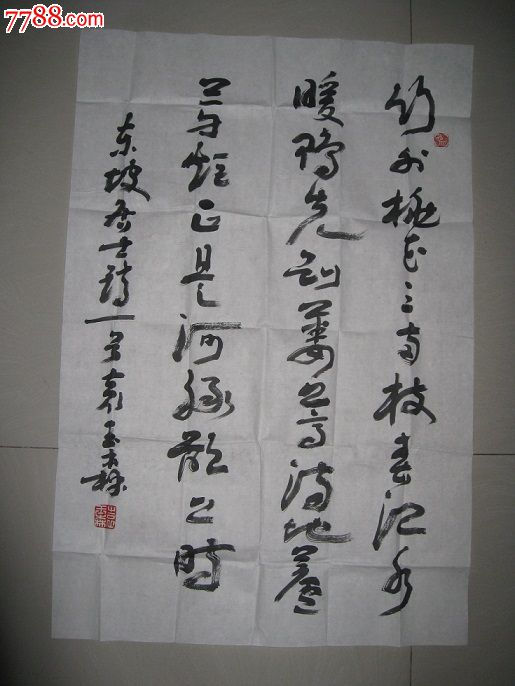 7788.com
竹外桃花三两枝春江水
暖鸭先知蒌蒿满地芦
芽短正是河豚欲上时
东坡居士诗一首袁玉森